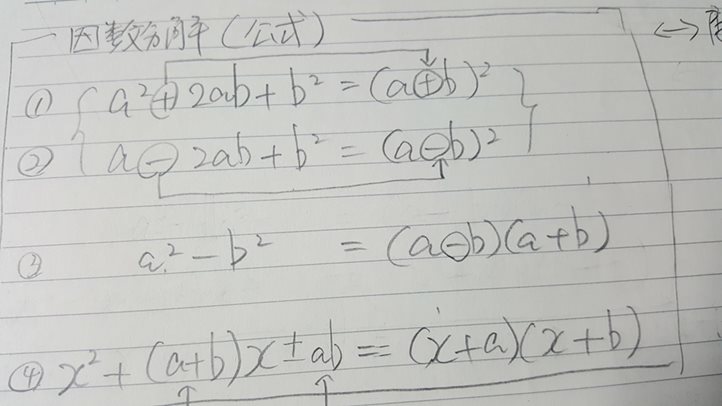 因数分解(公式)
① a²+2ab+b²=(a+b)²
② a-2ab+b²=(a-b)²
③ a²-b² =(a-b)(a+b)
④ x²+(a+b)x±ab=(x+a)(x+b)